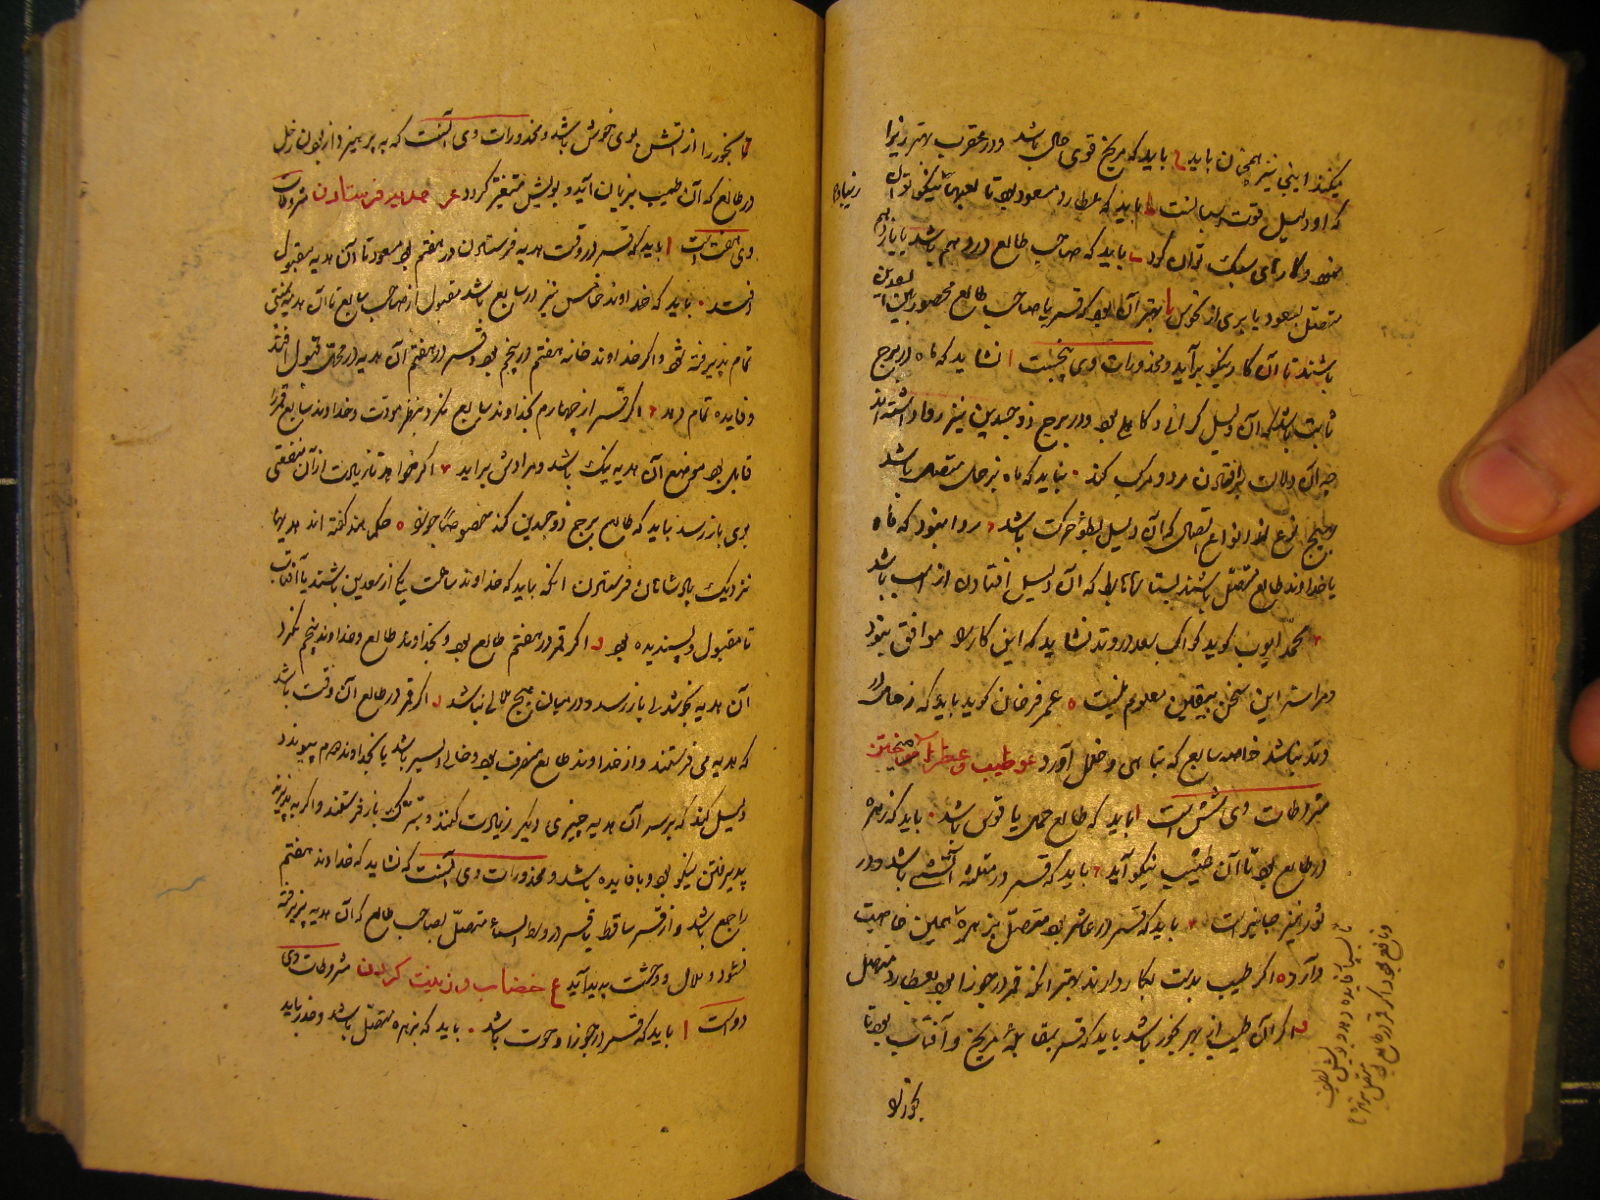 میکنند اینجا نیز همچنان باید باید که مریخ قوی حال باشد و در عقرب بهتر زیرا
که او دلیل قوت است باید که عطارد مسعود بود تا نیکو توان
و کارهای سبک توان کرد باید که صاحب طالع در دهم باشد یا یازدهم
متصل بسعود یا بری از نحوس بهتر آن بود که قمر یا صاحب طالع محصور بین السعدین
باشند تا آن کار نیکو برآید و محذورات وی پنجست ا نشاید که ماه در برج
ثابت باشد که آن دلیل گرانی و کاهلی بود و در برج ذوجسدین نیز روا داشته اند
چه آن دلالت بر افتادن مرد و مرکب کند نباید که ماه بزحل متصل باشد
بهیچ نوع از انواع اتصال که آن دلیل بطؤ حرکت باشد روا نبود که ماه
یا خداوند طالع متصل باشند که آن دلیل افتادن از اسب باشد
محمد ایوب گوید کواکب در وتد نشاید که این کار را موافق نبود
و مرا سر این سخن بیقین معلوم نیست عمر فرخان گوید باید که زحل در
وتد نباشد خاصه سابع که تباهی و خلل آورد طیب و عطر آمیختن
شروطات وی شش است ا باید که طالع حمل یا قوس باشد باید که زهره
در طالع بود تا آن طیب نیکو آید باید که قمر در مثلثه آتشی باشد و در
ثور نیز جایزست باید که قمر در عاشر بود متصل بزهره همین خاصیت
دارد اگر طیب بدست بکار دارند بهتر آنکه قمر در جوزا بود بعطارد متصل
اگر آن طیب از بهر بخور باشد باید که قمر بمقابله مریخ و آفتاب بود تا
بخور را
تا بخور را از آتش بوی خوش باشد و محذورات وی آنست که بپرهیزد از بودن زحل
در طالع که آن طیب بزیان آید و بویش متغیر گردد هدیه فرستادن شروطات
وی هفت است ا باید که قمر در وقت هدیه فرستادن در هفتم بود مسعود تا آن هدیه مقبول
افتد باید که خداوند خامس نیز در سابع باشد مقبول از صاحب سابع تا آن هدیه
تمام پذیرفته شود و اگر خداوند خانه هفتم در پنجم بود و قمر در هفتم آن هدیه در محل قبول افتد
و فایده تمام دهد اگر قمر از چهارم بخداوند سابع نگرد بنظر مودت و خداوند سابع قمر را
قابل بود موضع آن هدیه نیک باشد و مرادش برآید اگر خواهد تا زیادت از آن منفعتی
بوی باز رسد باید که طالع برج ذوجسدین کند خصوصا جوزا حکما هند گفته اند هدیها
نزدیک پادشاهان فرستادن آنکه باید که خداوند ساعت یکی از سعدین باشند یا آفتاب
تا مقبول و پسندیده بود اگر قمر در هفتم طالع بود و بخداوند طالع و خداوند پنجم نگرد
آن هدیه بخوشد را باز رسد و در میان هیچ ملالی نباشد اگر قمر در طالع آن وقت باشد
که هدیه می فرستند و از خداوند طالع منصرف بود و خالی السیر باشد یا بخداوند دهم پیوندد
دلیل کند که بر سر آن هدیه چیزی دیگر زیادت کنند و بازفرستند و اگر نه
پذیرفتن نیکو بود و با فایده باشد و محذورات وی آنست که نشاید که خداوند هفتم
راجع باشد و از قمر ساقط یا قمر در وسط السماء متصل بصاحب طالع که آن هدیه پذیرفته
نشود و ملال و وحشت پدید آید ع خضاب و زینت کردن شروطات وی
دو است ا باید که قمر در جوزا و حوت باشد باید که بزهره متصل باشد و حذر باید